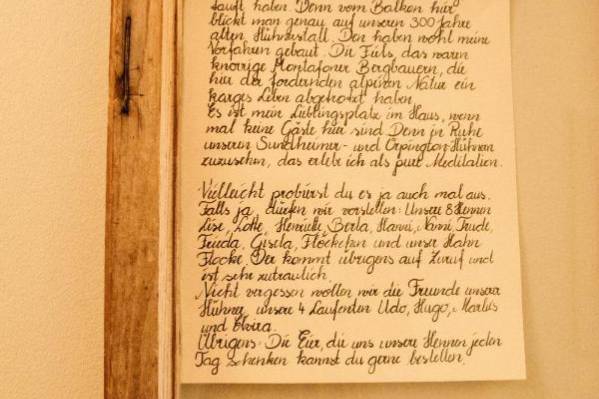 sauft haben. Denn vom Balkon hier
blickt man genau auf unseren 300 Jahre
alten Hühnerstall. Den haben wohl meine
Vorfahren gebaut. Die Fiels, das waren
knorrige Montafoner Bergbauern, die
hier der fordernden alpinen Natur ein
karges Leben abgetrotzt haben.
Es ist mein Lieblingsplatz im Haus, wenn
mal keine Gäste hier sind. Denn in Ruhe
unseren Sundheimer- und Orpington-Hühnern
zuzusehen, das erlebe ich als pure Meditation.
Vielleicht probierst du es ja auch mal aus.
Falls ja, dürfen wir vorstellen: Unsere 8 Hennen
Lise, Lotte, Henriette, Berta, Hanni, Nanni, Trude,
Frieda, Gisela, Flöckchen und unser Hahn
Flocke. Der kommt übrigens auf Zuruf und
ist sehr zutraulich.
Nicht vergessen wollen wir die Freunde unserer
Hühner, unsere 4 Laufenten Udo, Hugo, Marlies
und Elvira.
Übrigens: Die Eier, die uns unsere Hennen jeden
Tag schenken kannst du gerne bestellen.